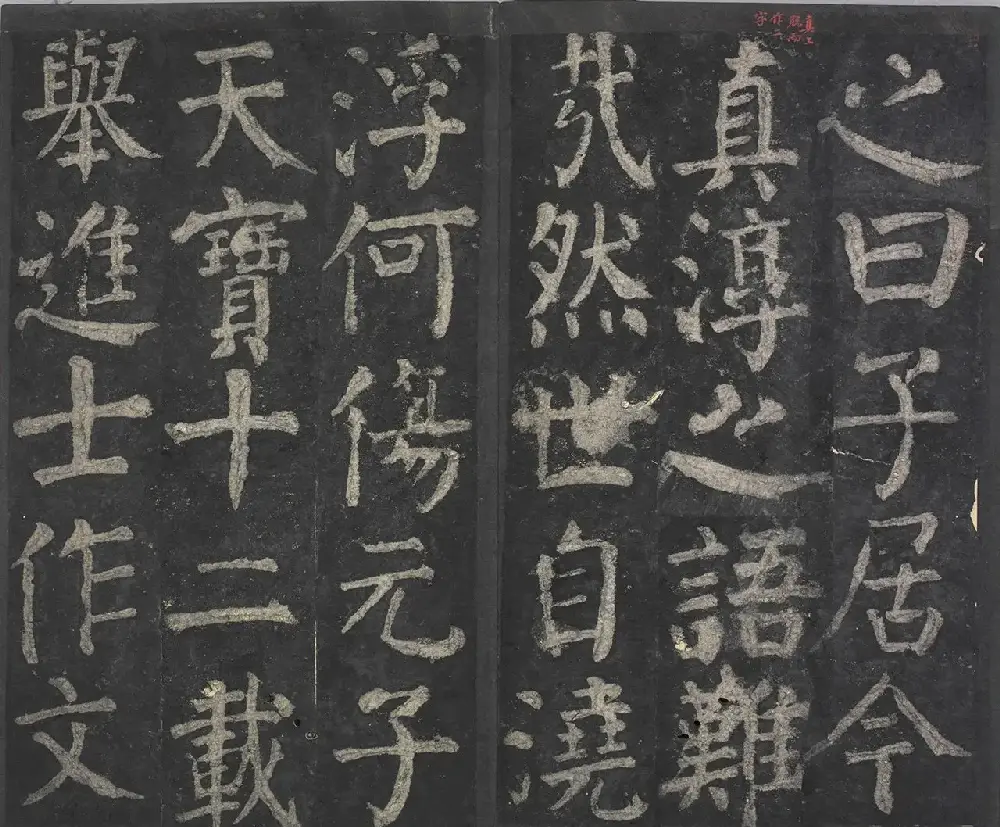 之曰子居今
真淳之語難
㦲然世自澆
浮何傷元子
天寶十二載
舉進士作文